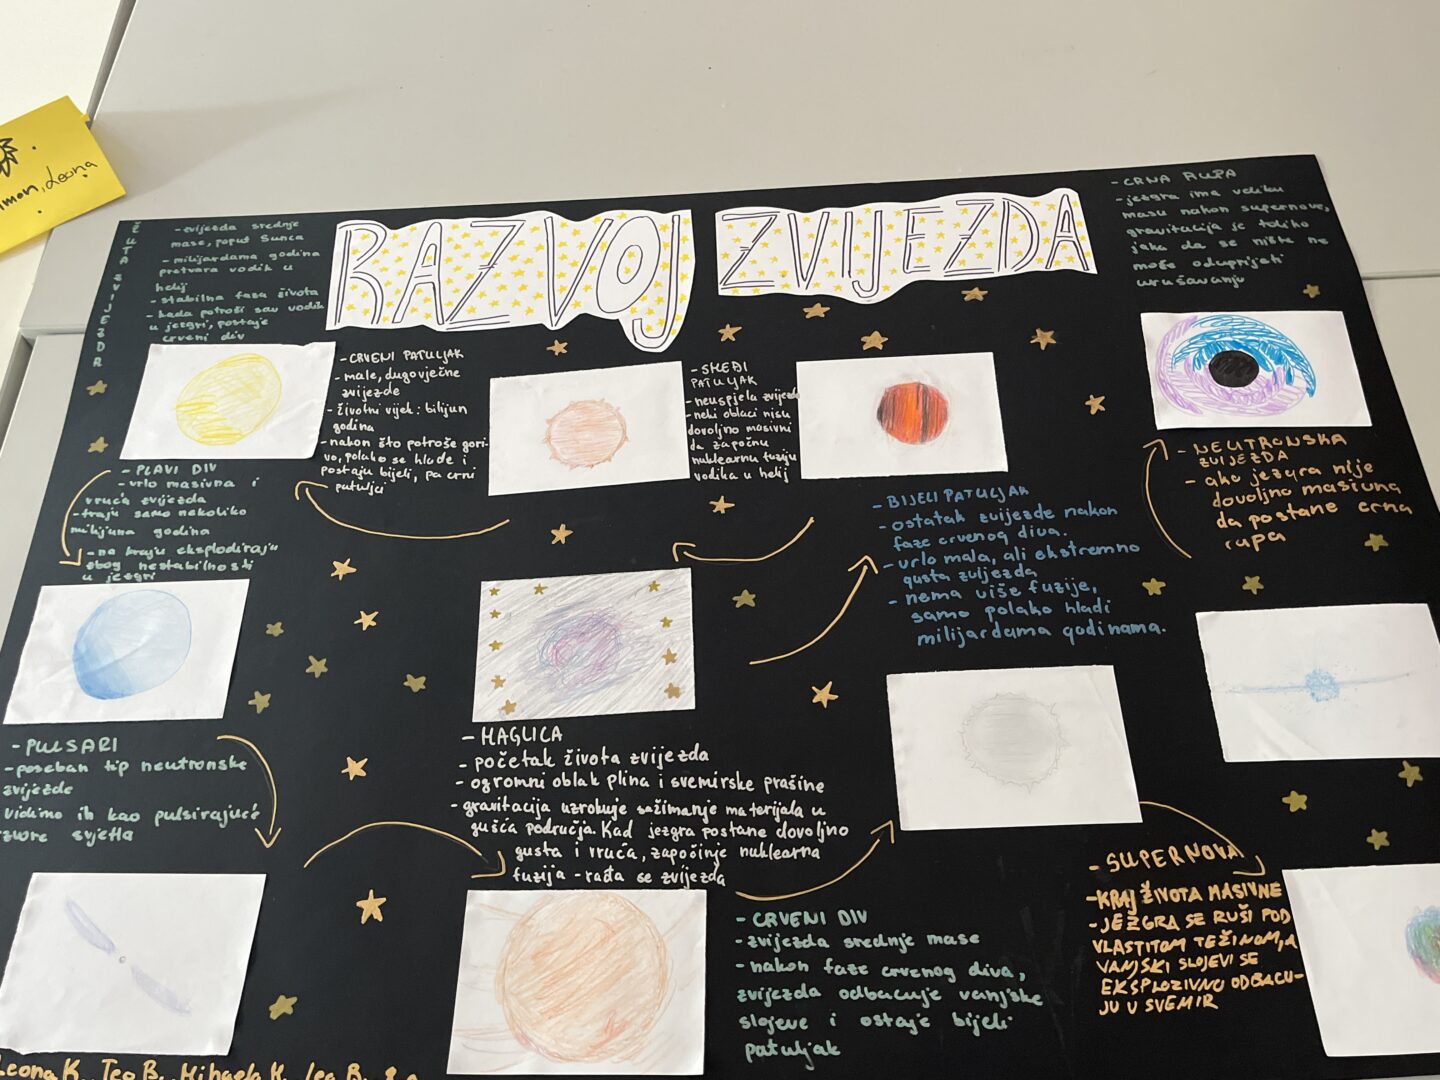 Leona
RAZVOJ ZVIJEZDA
ŽUTA ZVIJEZDA
- zvijezda srednje
mase, poput Sunca
- milijardama godina
pretvara vodik u
helij
- stabilna faza života
- kada potroši sav vodik
u jezgri, postaje
crveni div
- CRVENI PATULJAK
- male, dugovječne
zvijezde
- životni vijek: bilijun
godina
- nakon što potroše gori-
vo, polako se hlade i
postaju bijeli, pa crni
patuljci
- SMEĐI
PATULJAK
- neuspjela zvijezda
- neki oblaci nisu
dovoljno masivni
da započnu
nuklearnu fuziju
vodika u helij
- CRNA RUPA
- jezgra ima veliku
masu nakon supernove,
gravitacija je toliko
jaka da se ništa ne
može oduprijeti
urušavanju
- NEUTRONSKA
ZVIJEZDA
- ako jezgra nije
dovoljno masivna
da postane crna
rupa
- PLAVI DIV
- vrlo masivna i
vruća zvijezda
- traju samo nekoliko
milijuna godina
- na kraju eksplodiraju
zbog nestabilnosti
u jezgri
- BIJELI PATULJAK
- ostatak zvijezde nakon
faze crvenog diva.
- vrlo mala, ali ekstremno
gusta zvijezda
- nema više fuzije,
samo polako hladi
milijardama godinama.
- PULSARI
- poseban tip neutronske
zvijezde
vidimo ih kao pulsirajuće
izvore svjetla
- MAGLICA
- početak života zvijezda
- ogromni oblak plina i svemirske prašine
- gravitacija uzrokuje sažimanje materijala u
gušća područja. Kad jezgra postane dovoljno
gusta i vruća, započinje nuklearna
fuzija - rađa se zvijezda
- CRVENI DIV
- zvijezda srednje mase
- nakon faze crvenog diva,
zvijezda odbacuje vanjske
slojeve i ostaje bijeli
patuljak
- SUPERNOVA
- KRAJ ŽIVOTA MASIVNE
- JEZGRA SE RUŠI POD
VLASTITOM TEŽINOM, A
VANJSKI SLOJEVI SE
EKSPLOZIVNO ODBACU-
JU U SVEMIR
Leona K., Teo B., Mihaela K., Lea B.